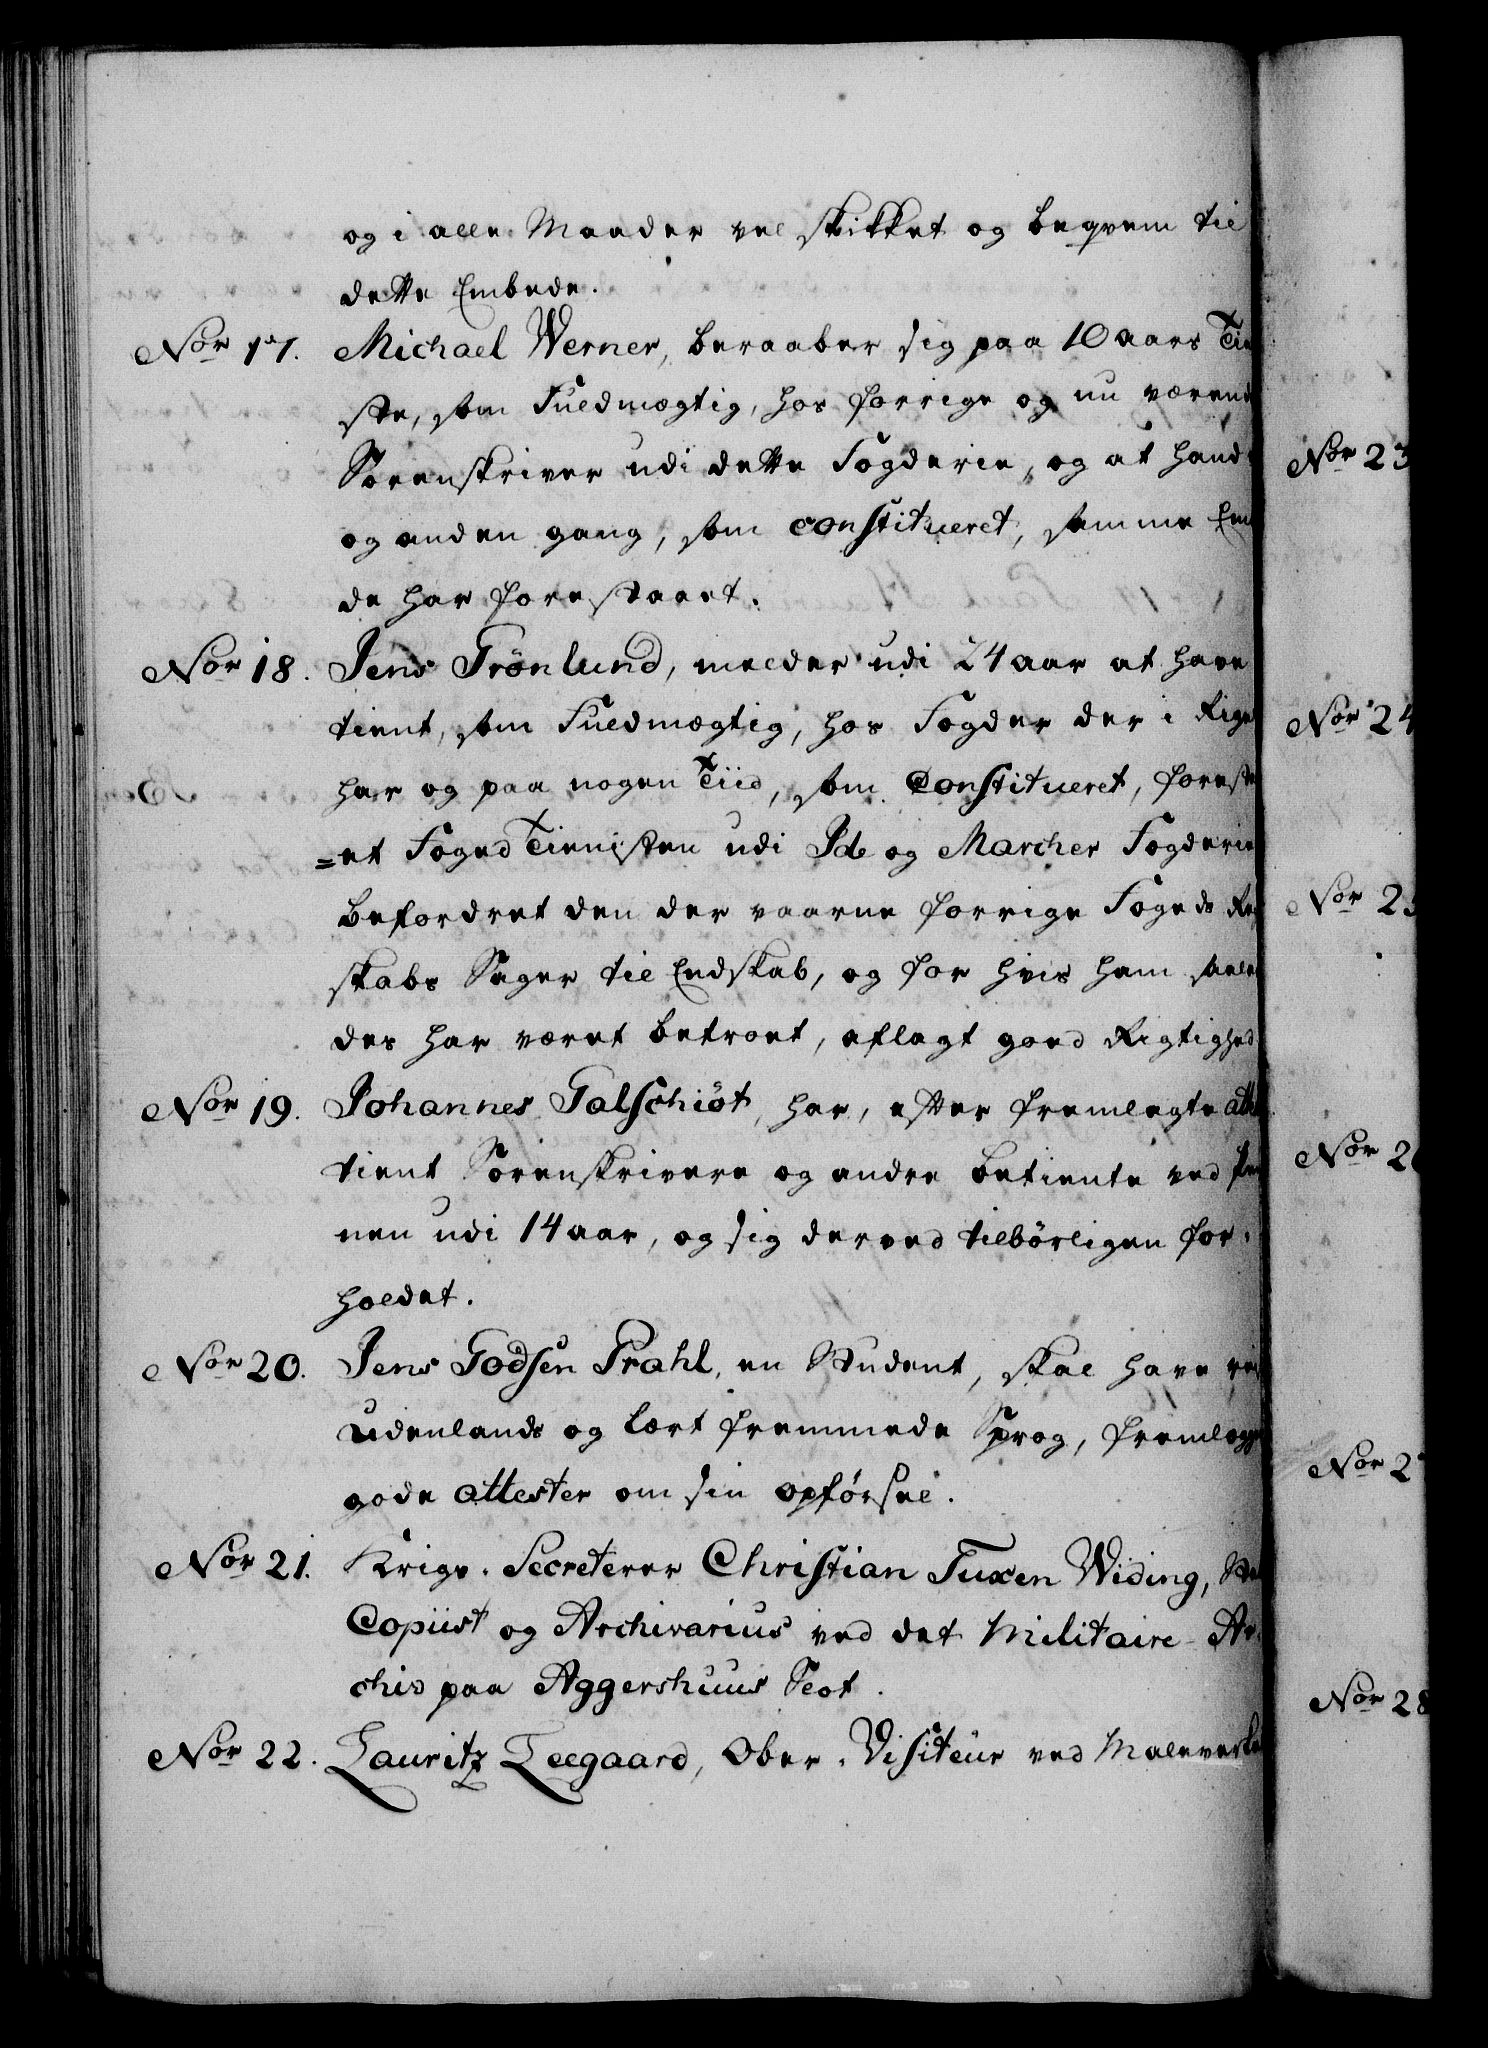 og i alle Maader vel skikket og beqvem til
dette Embede.
Nor 17. Michael Werner, beraaber sig paa 10 aars Tie
ste, som Fuldmægtig, hos forrige og nu værend
Sorenskriver udi dette Fogderie, og at hand
og anden gang, som constitueret, samme Em
de har forestaaet.
Nor 18. Jens Grönlund, melder udi 24 aar at have
tient, som Fuldmægtig, hos Fogder der i Riget
har og paa nogen Tiid, som Constitueret, foresta
=et Foged Tienisten udi Ide og Marcher Fogderie
befordret den der vaarne forrige Fogeds Reg
skabs Sager til Endskab, og for hvis ham saale
des har været betroet, aflagt goed Rigtighed
Nor 19. Johannes Galschiöt, har, efter fremlagte att
tient Sorenskrivere og andre betiente ved Pen
nen udi 14 aar, og sig derved tilbörligen for-
holdet.
Nor 20. Jens Godsen Prahl, en Student, skal have rei
udenlands og lært fremmede Sprog, fremlegge
gode attester om sin opförsel.
Nor 21. Krigs-Secreterer Christian Tuxen Widing,
Copiist og Archivarius ved det Militaire Ar-
chiv paa Aggershuus Slot.
Nor 22. Lauritz Leegaard, Ober-Visiteur ved Maleverke
Nor 23
Nor 24
Nor 25
Nor 2
Nor 2
Nor 28